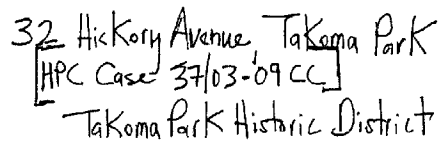 32 Hickory Avenue Takoma Park
[HPC Case 37/03-09CC]
Takoma Park Historic District